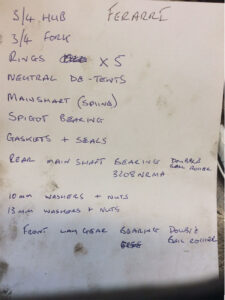 3/4 HUB FERARRI
3/4 FORK
RINGS X5
NEUTRAL DE-TENTS
MAINSHAFT (SPLINE)
SPIGOT BEARING
GASKETS + SEALS
REAR MAIN SHAFT BEARING DOUBLE BALL ROLLER
3208NRMA
10mm WASHERS + NUTS
13mm WASHERS + NUTS
FRONT LAY GEAR BEARING DOUBLE BALL ROLLER